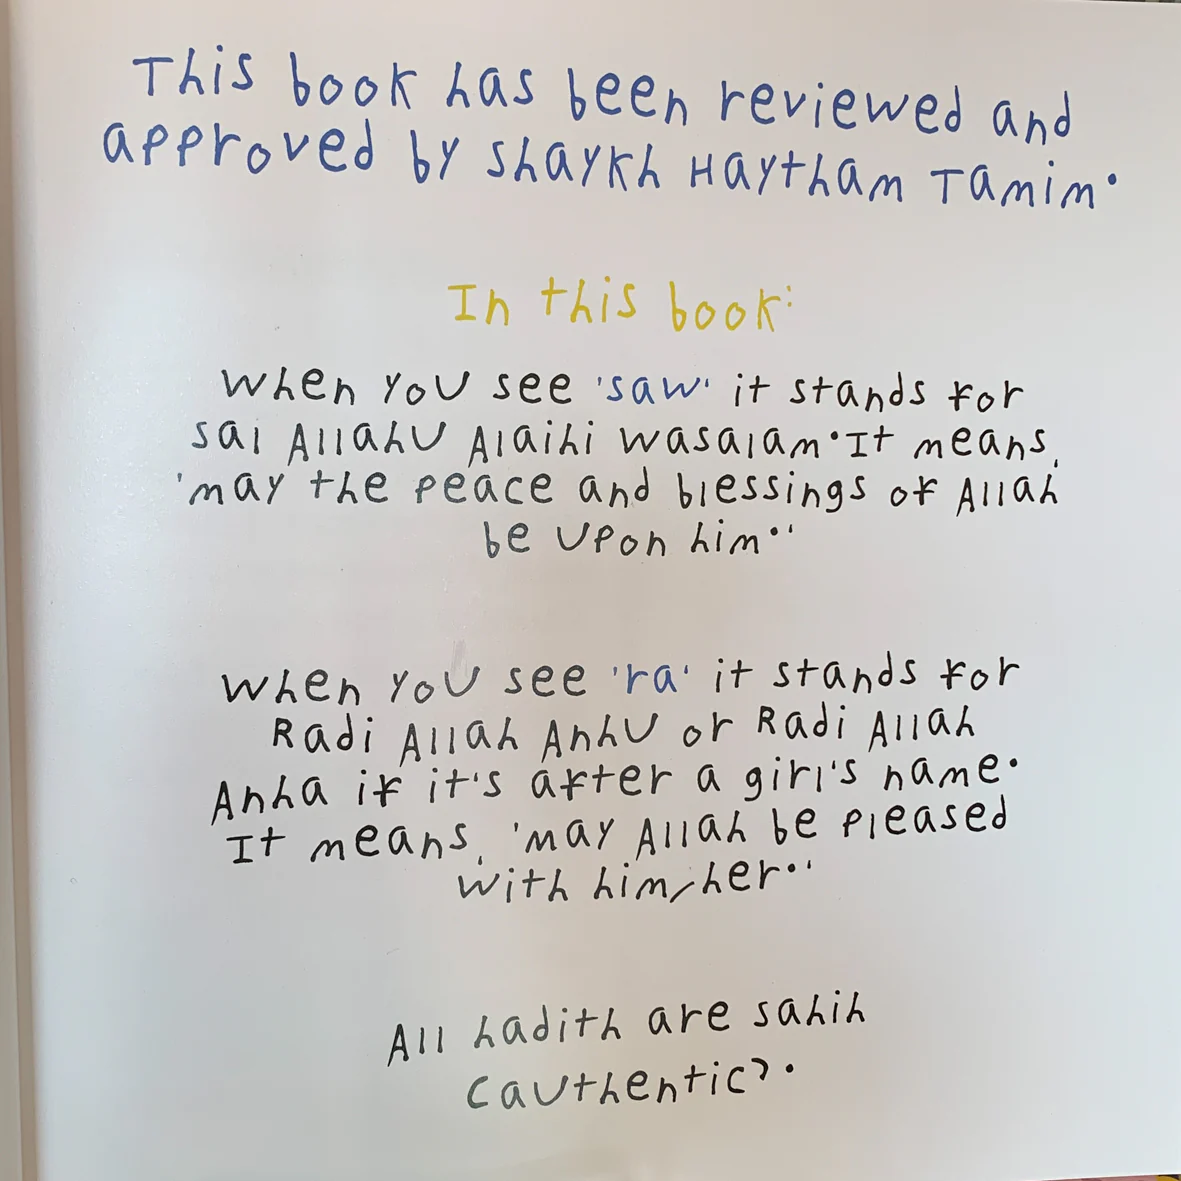 This book has been reviewed and
approved by Shaykh Haytham Tamim.
In this book:
When you see 'saw' it stands for
sal Allahu Alaihi wasalam. It means,
'may the peace and blessings of Allah
be upon him.'
When you see 'ra' it stands for
Radi Allah Anhu or Radi Allah
Anha if it's after a girl's name.
It means, 'may Allah be pleased
with him/her.'
All hadith are sahih
(authentic).